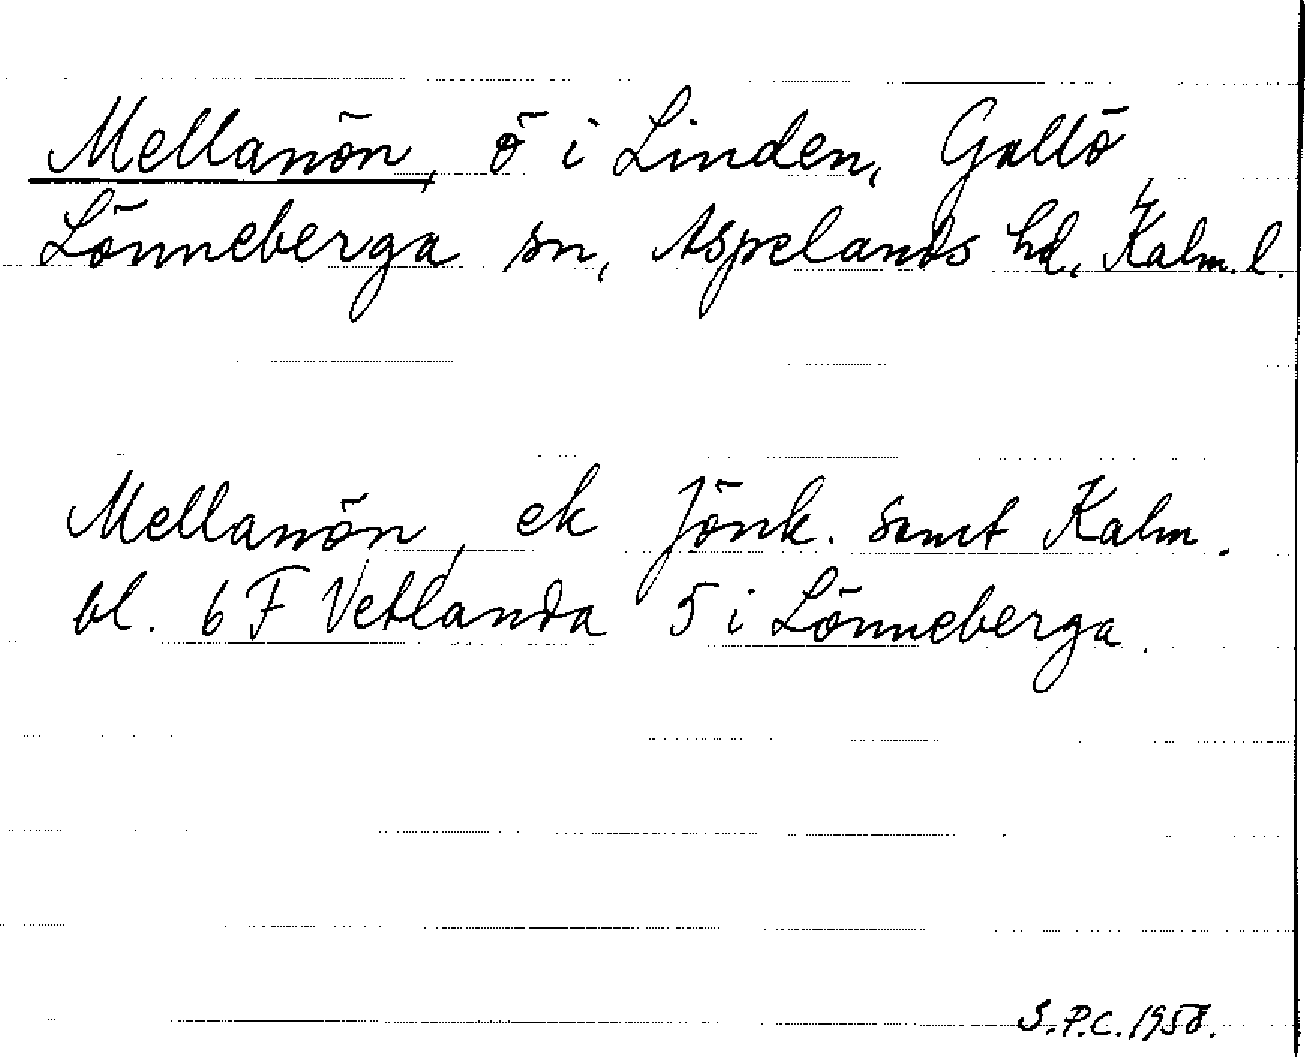 Mellanön, ö i Linden, Gallö,
Lönneberga sn, Aspelands hd, Kalm. l.
Mellanön, ek Jönk. samt Kalm.
bl. 6 F Vetlanda 5 i Lönneberga.
S.P.C. 1958.